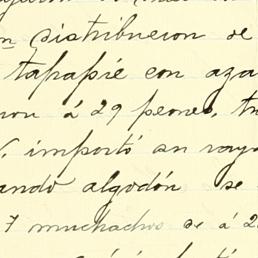 distribucion de
tapapié con aza
ron á 29 peones, tra
importó an raya
ando algodón se
7 muchachos se á 2